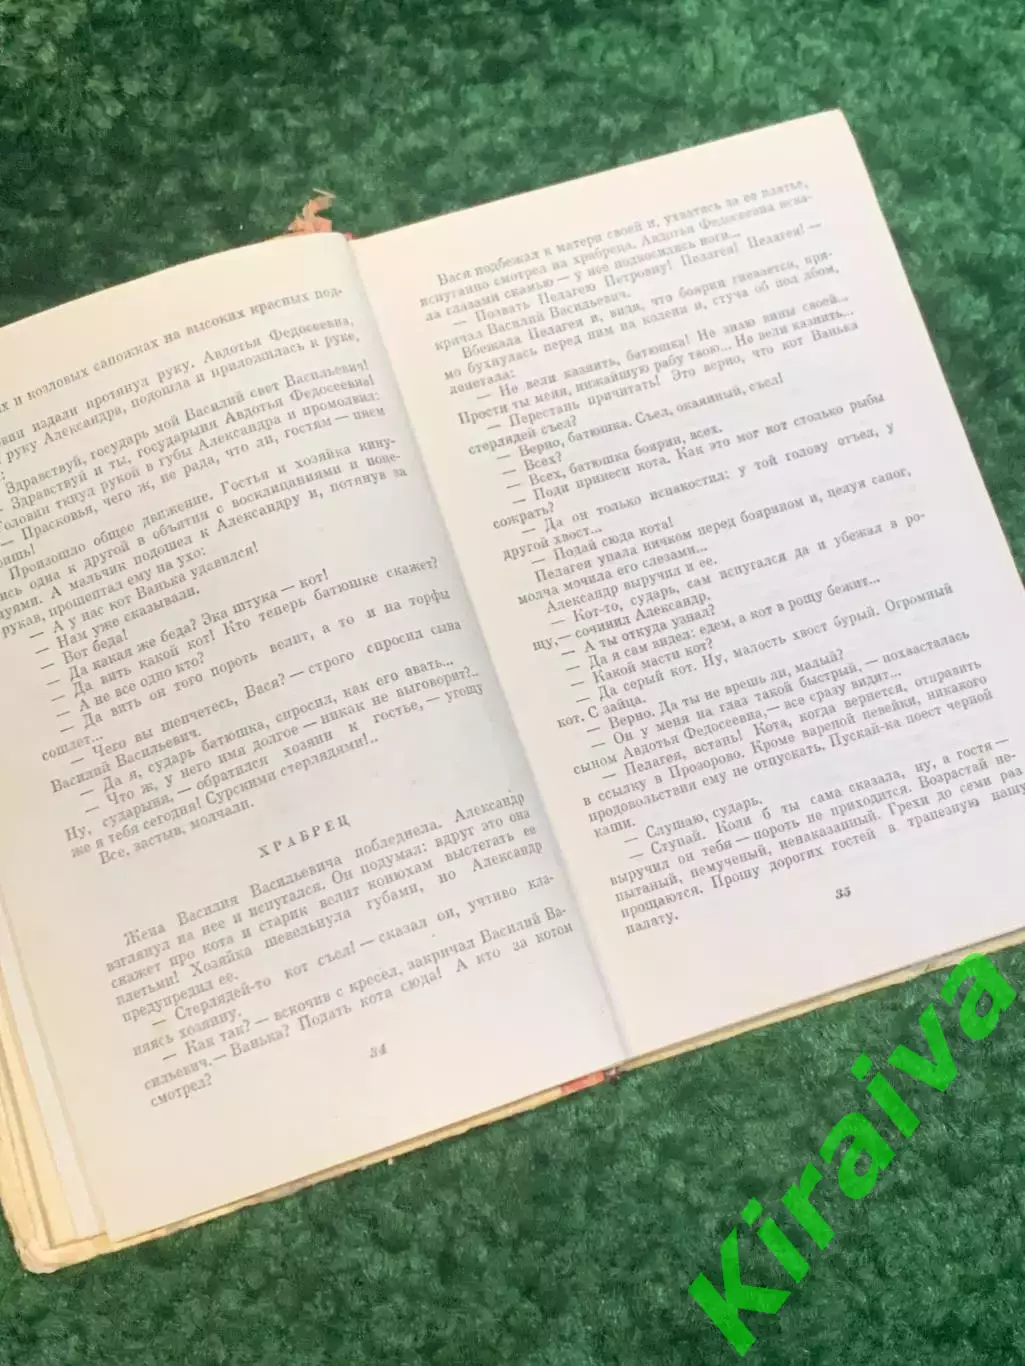 х и козловых сапожках на высоких красных под-
вин издали протянул руку. Авдотья Федосеевна,
руку Александра, подошла и приложилась к руке,
Здравствуй, государь мой Василий свет Васильевич!
— Здравствуй и ты, государыня Авдотья Федосеевна!
Головин ткнул рукой в губы Александра и промолвил:
— Прасковья, чего ж, не рада, что ли, гостям — нием
ришь!
Произошло общее движение. Гостья и хозяйка кину-
лись одна к другой в объятия с восклицаниями и поце-
луями. А мальчик подошел к Александру и, потянув за
рукав, прошептал ему на ухо:
— А у нас кот Ванька удавился!
— Нам уже сказывали.
— Вот беда!
— Да какая же беда? Эка штука — кот!
— Да вить какой кот! Кто теперь батюшке скажет?
— А не все одно кто?
— Да вить он того пороть велит, а то и на торфы
сошлет...
— Чего вы шепчетесь, Вася? — строго спросил сына
Василий Васильевич.
— Да я, сударь батюшка, спросил, как его звать...
— Что ж, у него имя долгое — никак не выговорит?..
Ну, сударыня, — обратился хозяин к гостье, — угощу
же я тебя сегодня! Сурскими стерлядями!..
Все, застыв, молчали.
ХРАБРЕЦ
Жена Василия Васильевича побледнела. Александр
взглянул на нее и испугался. Он подумал: вдруг это она
скажет про кота и старик велит конюхам выстегать ее
плетьми! Хозяйка шевельнула губами, но Александр
предупредил ее.
— Стерлядей-то кот съел! — сказал он, учтиво кла-
няясь хозяину.
— Как так? — вскочив с кресел, закричал Василий Ва-
сильевич. — Ванька? Подать кота сюда! А кто за котом
смотрел?
34
Вася подбежал к матери своей и, ухватясь за ее платье,
испуганно смотрел на храбреца. Авдотья Федосеевна иска-
ла глазами скамью — у нее подкосились ноги...
— Позвать Пелагею Петровну! Пелагея! Пелагея! —
кричал Василий Васильевич.
Вбежала Пелагея и, видя, что боярин гневается, пря-
мо бухнулась перед ним на колени и, стуча об пол лбом,
лепетала:
— Не вели казнить, батюшка! Не знаю вины своей...
Прости ты меня, нижайшую рабу твою... Не вели казнить...
— Перестань причитать! Это верно, что кот Ванька
стерлядей съел?
— Верно, батюшка. Съел, окаянный, съел!
— Всех?
— Всех, батюшка боярин, всех.
— Поди принеси кота. Как это мог кот столько рыбы
сожрать?
— Да он только испакостил: у той голову отъел, у
другой хвост...
— Подай сюда кота!
Пелагея упала ничком перед боярином и, целуя сапог,
молча мочила его слезами...
Александр выручил и ее.
— Кот-то, сударь, сам испугался да и убежал в ро-
щу, — сочинил Александр.
— А ты откуда узнал?
— Да я сам видел: едем, а кот в рощу бежит...
— Какой масти кот?
— Да серый кот. Ну, малость хвост бурый. Огромный
кот. С зайца.
— Верно. Да ты не врешь ли, малый?
— Он у меня на глаз такой быстрый, — похвасталась
сыном Авдотья Федосеевна, — все сразу видит...
— Пелагея, встань! Кота, когда вернется, отправить
в ссылку в Прозорово. Кроме вареной певейки, никакого
продовольствия ему не отпускать. Пускай-ка поест черной
каши.
— Слушаю, сударь.
— Ступай. Коли б ты сама сказала, ну, а гостя —
выручил он тебя — пороть не приходится. Возрастай не-
пытаный, немученый, ненаказанный. Грехи до семи раз
прощаются. Прошу дорогих гостей в трапезную нашу
палату.
35
Kiraiva